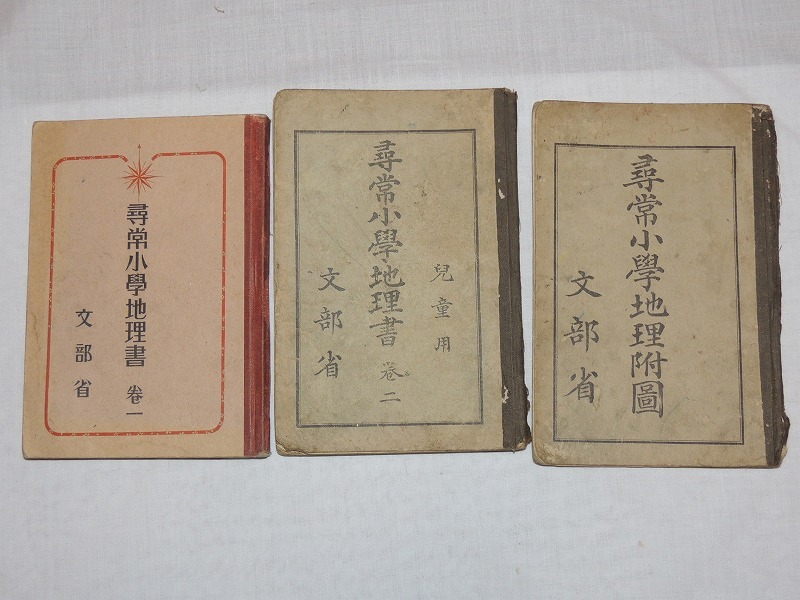 尋常小學地理書 卷一
文部省
兒童用
尋常小學地理書 卷二
文部省
尋常小學地理附圖
文部省